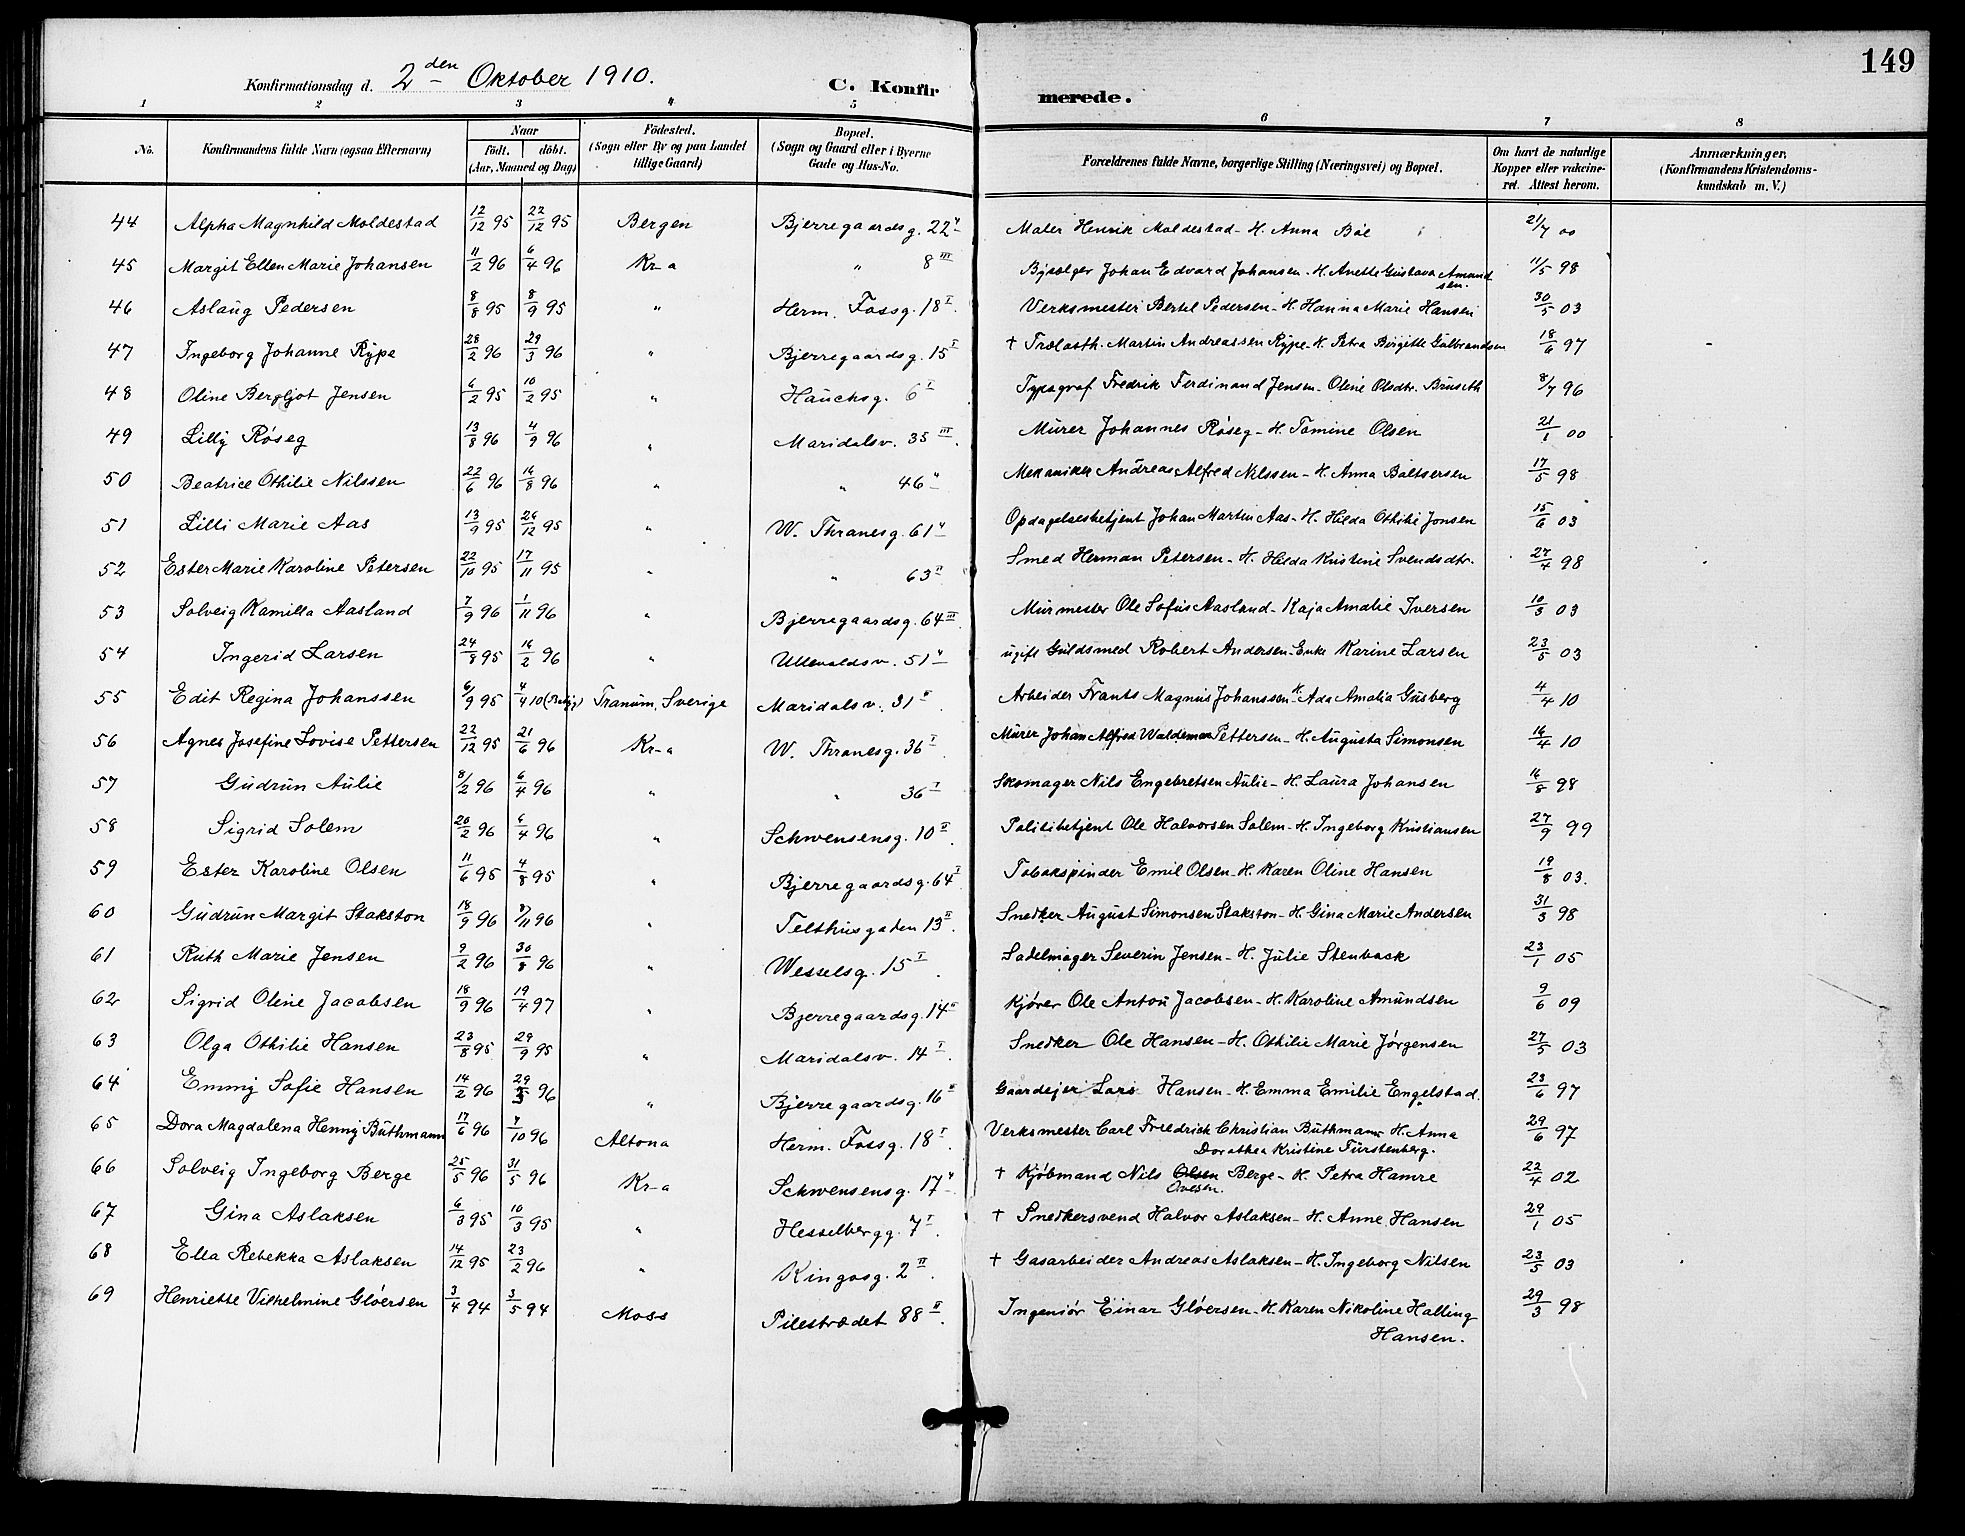 149
Konfirmationsdag d. 2den Oktober 1910. C. Konfirmerede.
1 2 3 4 5 6 7 8
No. Konfirmandens fulde Navn (ogsaa Efternavn) Naar født. døbt. (Aar, Maaned og Dag) Födested. (Sogn eller By og paa Landet tillige Gaard) Bopæl. (Sogn og Gaard eller i Byerne Gade og Hus-No. Forældrenes fulde Navne, borgerlige Stilling (Næringsvei) og Bopæl. Om havt de naturlige Kopper eller vakcineret. Attest herom. Anmærkninger. (Konfirmandens Kristendomskundskab m. V.)
44 Alpha Magnhild Moldestad 12/12 95 22/12 95 Bergen Bjerregaardsg. 22 Maler Henrik Moldestad - H. Anna Böe 21/7 00
45 Margit Ellen Marie Johansen 11/2 96 6/4 96 Kr-a " 8 III Johan Edvard Johansen - H. Anette Gustava Amundsen. 11/5 98
46 Aslaug Pedersen 8/8 95 8/9 95 " Herm. Fossg. 18 I. Verksmester Bertel Pedersen - H. Hanna Marie Hansen 30/5 03
47 Ingeborg Johanne Rype 28/2 96 29/3 96 " Bjerregaardsg. 15 I † Trælasth. Martin Andreassen Rype - H. Petra Birgitte Gulbrandsen 18/6 97
48 Oline Bergljot Jensen 6/2 95 10/2 95 " Hauchsg. 6 I Typograf Fredrik Ferdinand Jensen - Oline Olsdtr. Bruseth 8/7 96
49 Lilly Röseg 13/8 96 4/9 96 " Maridalsv. 35 III. Murer Johannes Röseg - H. Tomine Olsen 21/1 00
50 Beatrice Othilie Nilssen 22/6 96 16/8 96 " " 46 Mekaniker Andreas Alfred Nilssen - H. Anna Baltsersen 17/5 98
51 Lilli Marie Aas 13/9 95 26/12 95 " W. Thranesg. 61 Opdagelsesbetjent Johan Martin Aas - H. Hilda Othilie Jonsen 15/6 03
52 Ester Marie Karoline Petersen 22/10 95 17/11 95 " " 63 II Smed Herman Petersen - H. Hilda Kristine Svendsdtr. 27/4 98
53 Solveig Kamilla Aasland 7/9 96 1/11 96 " Bjerregaardsg. 64 III Murmester Ole Sofus Aasland - Kaja Amalie Iversen 10/3 03
54 Ingerid Larsen 24/8 95 16/2 96 " Ullevoldsv. 51 ugift Guldsmed Robert Andersen - Enke Karine Larsen 23/5 03
55 Edit Regina Johanssen 6/9 95 4/4 10 Tranum, Sverige Maridalsv. 31 II. Arbeider Frants Magnus Johanssen - H. Ada Amalia Gusberg 4/4 10
56 Agnes Josefine Lovise Pettersen 22/12 95 21/6 96 Kr-a W. Thranesg. 36 I Murer Johan Alfred Waldemar Pettersen - H. Augusta Simonsen 16/4 10
57 Gudrun Aulie 8/2 96 6/4 96 " " 36 I Skomager Nils Engebretsen Aulie - H. Laura Johansen 16/8 98
58 Sigrid Solem 20/2 96 6/4 96 " Schwensensg. 10 II. Politibetjent Ole Halvorsen Solem - H. Ingeborg Kristiansen 27/9 99
59 Ester Karoline Olsen 11/6 95 4/8 95 " Bjerregaardsg. 64 I Tobakspinder Emil Olsen - H. Karen Oline Hansen 19/8 03.
60 Gudrun Margit Stakston 18/9 96 8/11 96 " Telthusgaden 13 II. Snedker August Simonsen Stakston - H. Gina Marie Andersen 31/3 98
61 Ruth Marie Jensen 9/2 96 30/8 96 " Wesselsg. 15 I. Sadelmager Severin Jensen - H. Julie Stenback 23/1 05
62 Sigrid Oline Jacobsen 18/9 96 19/4 97 " Bjerregaardsg. 14 II Kjører Ole Anton Jacobsen - H. Karoline Amundsen 9/6 09
63 Olga Othilie Hansen 23/8 95 29/9 95 " Maridalsv. 14 I. Snedker Ole Hansen - H. Othilie Marie Jörgensen 27/5 03
64 Emmy Sofie Hansen 14/2 96 29/3 96 " Bjerregaardsg. 16 II Gaardejer Lars Hansen - H. Emma Emilie Engelstad. 23/6 97
65 Dora Magdalena Henny Buthmann 17/6 96 7/10 96 Altona Herm. Fossg. 18 I. Verksmester Carl Friedrich Christian Buthmann H. Anna Dorathea Kristine Fürstenberg. 29/6 97
66 Solveig Ingeborg Berge 25/5 96 31/5 96 Kr-a Schwensensg. 17 † Kjöbmand Nils Olsen Ovesen. Berge - H. Petra Hamre 22/4 02
67 Gina Aslaksen 6/3 95 10/3 95 " Hesselbergg. 7 I. † Snedkersvend Halvor Aslaksen - H. Anne Hansen 29/1 05
68 Ella Rebekka Aslaksen 14/12 95 23/2 96 " Kingosg. 2 II. † Gasarbeider Andreas Aslaksen - H. Ingeborg Nilsen 23/5 03
69 Henriette Vilhelmine Glöersen 3/4 94 3/5 94 Moss Pilestrædet 88 II. Ingeniør Einar Glöersen - H. Karen Nikoline Halling Hansen. 29/3 98